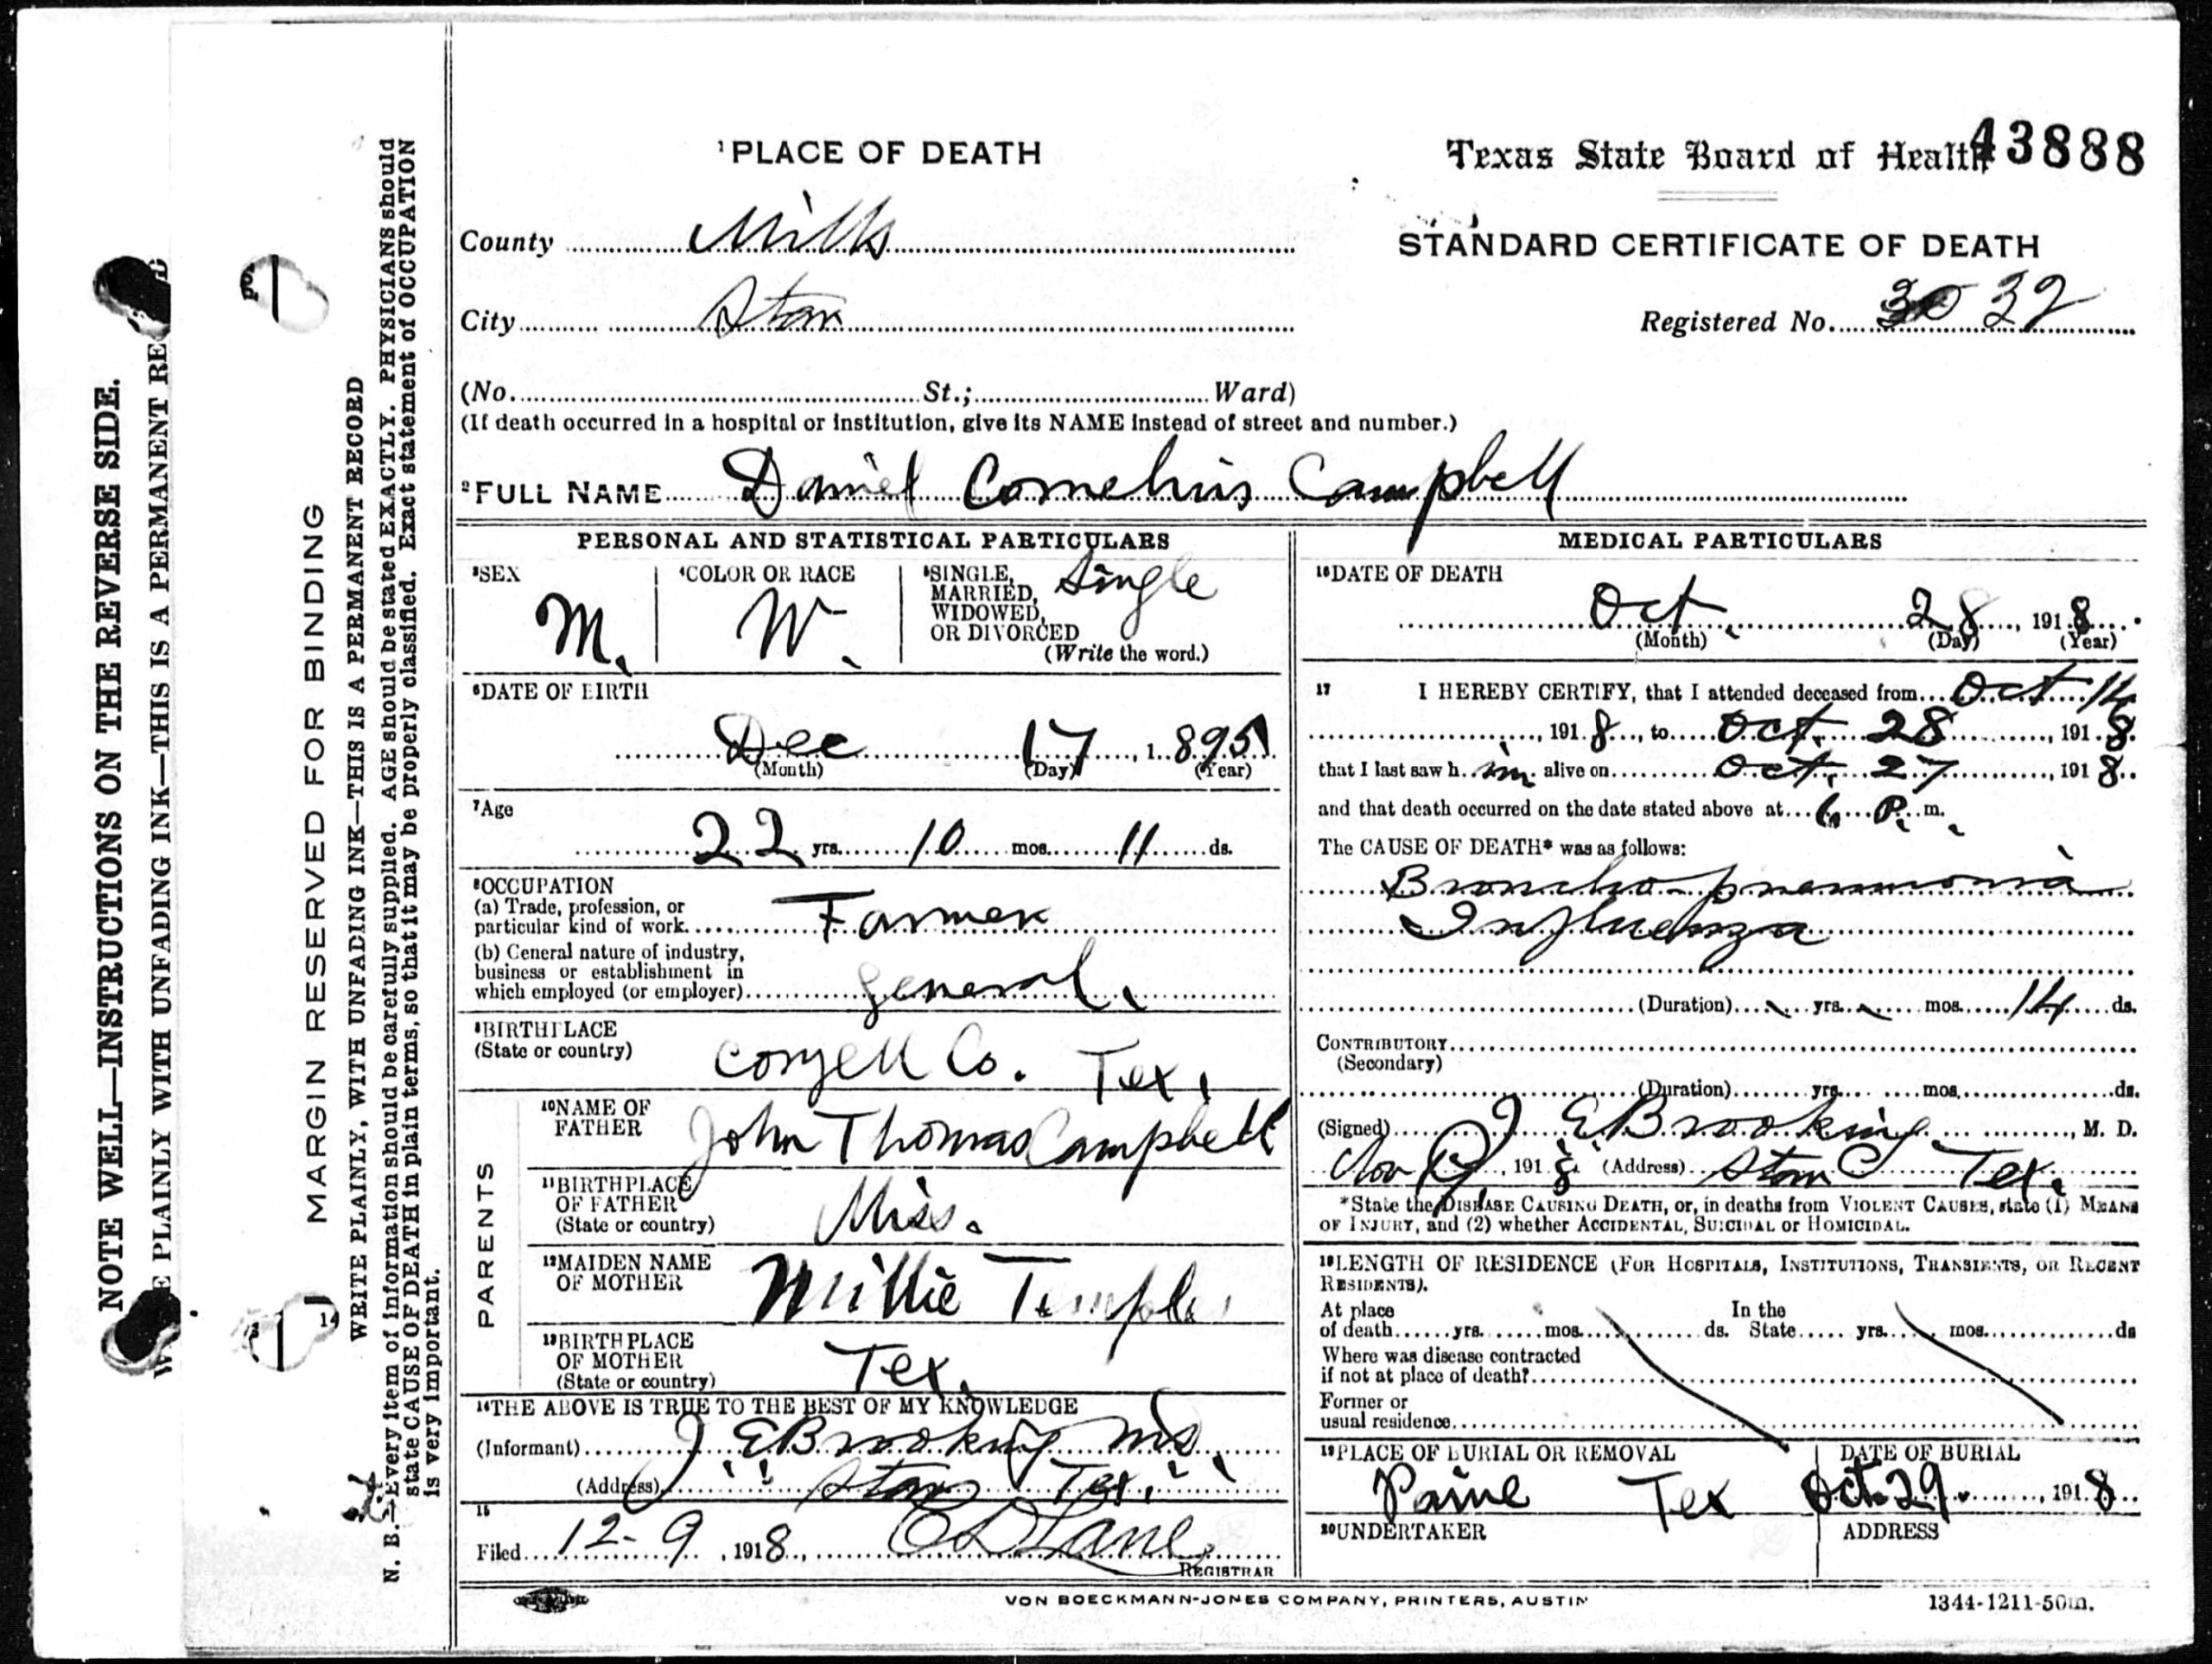 ¹PLACE OF DEATH
Texas State Board of Health 43888
County Mills
STANDARD CERTIFICATE OF DEATH
City Star
Registered No. 32
(No. St.; Ward)
(If death occurred in a hospital or institution, give its NAME instead of street and number.)
²FULL NAME Daniel Cornelius Campbell
PERSONAL AND STATISTICAL PARTICULARS
³SEX M.
⁴COLOR OR RACE W.
⁵SINGLE, MARRIED, WIDOWED, OR DIVORCED Single
(Write the word.)
⁶DATE OF BIRTH
Dec 17, 1895
(Month) (Day) (Year)
⁷Age
22 yrs. 10 mos. 11 ds.
⁸OCCUPATION
(a) Trade, profession, or
particular kind of work Farmer
(b) General nature of industry,
business or establishment in
which employed (or employer) general.
⁹BIRTHPLACE
(State or country) Coryell Co. Tex.
PARENTS
¹⁰NAME OF
FATHER John Thomas Campbell
¹¹BIRTHPLACE
OF FATHER
(State or country) Miss.
¹²MAIDEN NAME
OF MOTHER Millie Temple
¹³BIRTHPLACE
OF MOTHER
(State or country) Tex.
¹⁴THE ABOVE IS TRUE TO THE BEST OF MY KNOWLEDGE
(Informant) J E Brooking
(Address) Star Tex.
15
Filed 12-9, 1918, Lane
REGISTRAR
MEDICAL PARTICULARS
¹⁶DATE OF DEATH
Oct. 28, 1918
(Month) (Day) (Year)
17 I HEREBY CERTIFY, that I attended deceased from Oct 14
, 1918, to Oct. 28, 1918.
that I last saw him alive on Oct. 27, 1918
and that death occurred on the date stated above at 6 P. m.
The CAUSE OF DEATH* was as follows:
Broncho-pneumonia
Influenza
(Duration) yrs. mos. 14 ds.
CONTRIBUTORY
(Secondary)
(Duration) yrs. mos. ds.
(Signed) J E Brooking, M. D.
Nov, 1918 (Address) Star Tex.
*State the DISEASE CAUSING DEATH, or, in deaths from VIOLENT CAUSES, state (1) MEANS
OF INJURY, and (2) whether ACCIDENTAL, SUICIDAL or HOMICIDAL.
¹⁸LENGTH OF RESIDENCE (FOR HOSPITALS, INSTITUTIONS, TRANSIENTS, OR RECENT
RESIDENTS).
At place In the
of death yrs. mos. ds. State yrs. mos. ds
Where was disease contracted
if not at place of death?
Former or
usual residence
¹⁹PLACE OF BURIAL OR REMOVAL
Tex
DATE OF BURIAL
Oct. 29, 1918
²⁰UNDERTAKER
ADDRESS
VON BOECKMANN-JONES COMPANY, PRINTERS, AUSTIN
1344-1211-50m.
NOTE WELL—INSTRUCTIONS ON THE REVERSE SIDE.
PLAINLY WITH UNFADING INK—THIS IS A PERMANENT RE
MARGIN RESERVED FOR BINDING
WRITE PLAINLY, WITH UNFADING INK—THIS IS A PERMANENT RECORD
N. B.—Every item of information should be carefully supplied. AGE should be stated EXACTLY. PHYSICIANS should
state CAUSE OF DEATH in plain terms, so that it may be properly classified. Exact statement of OCCUPATION
is very important.